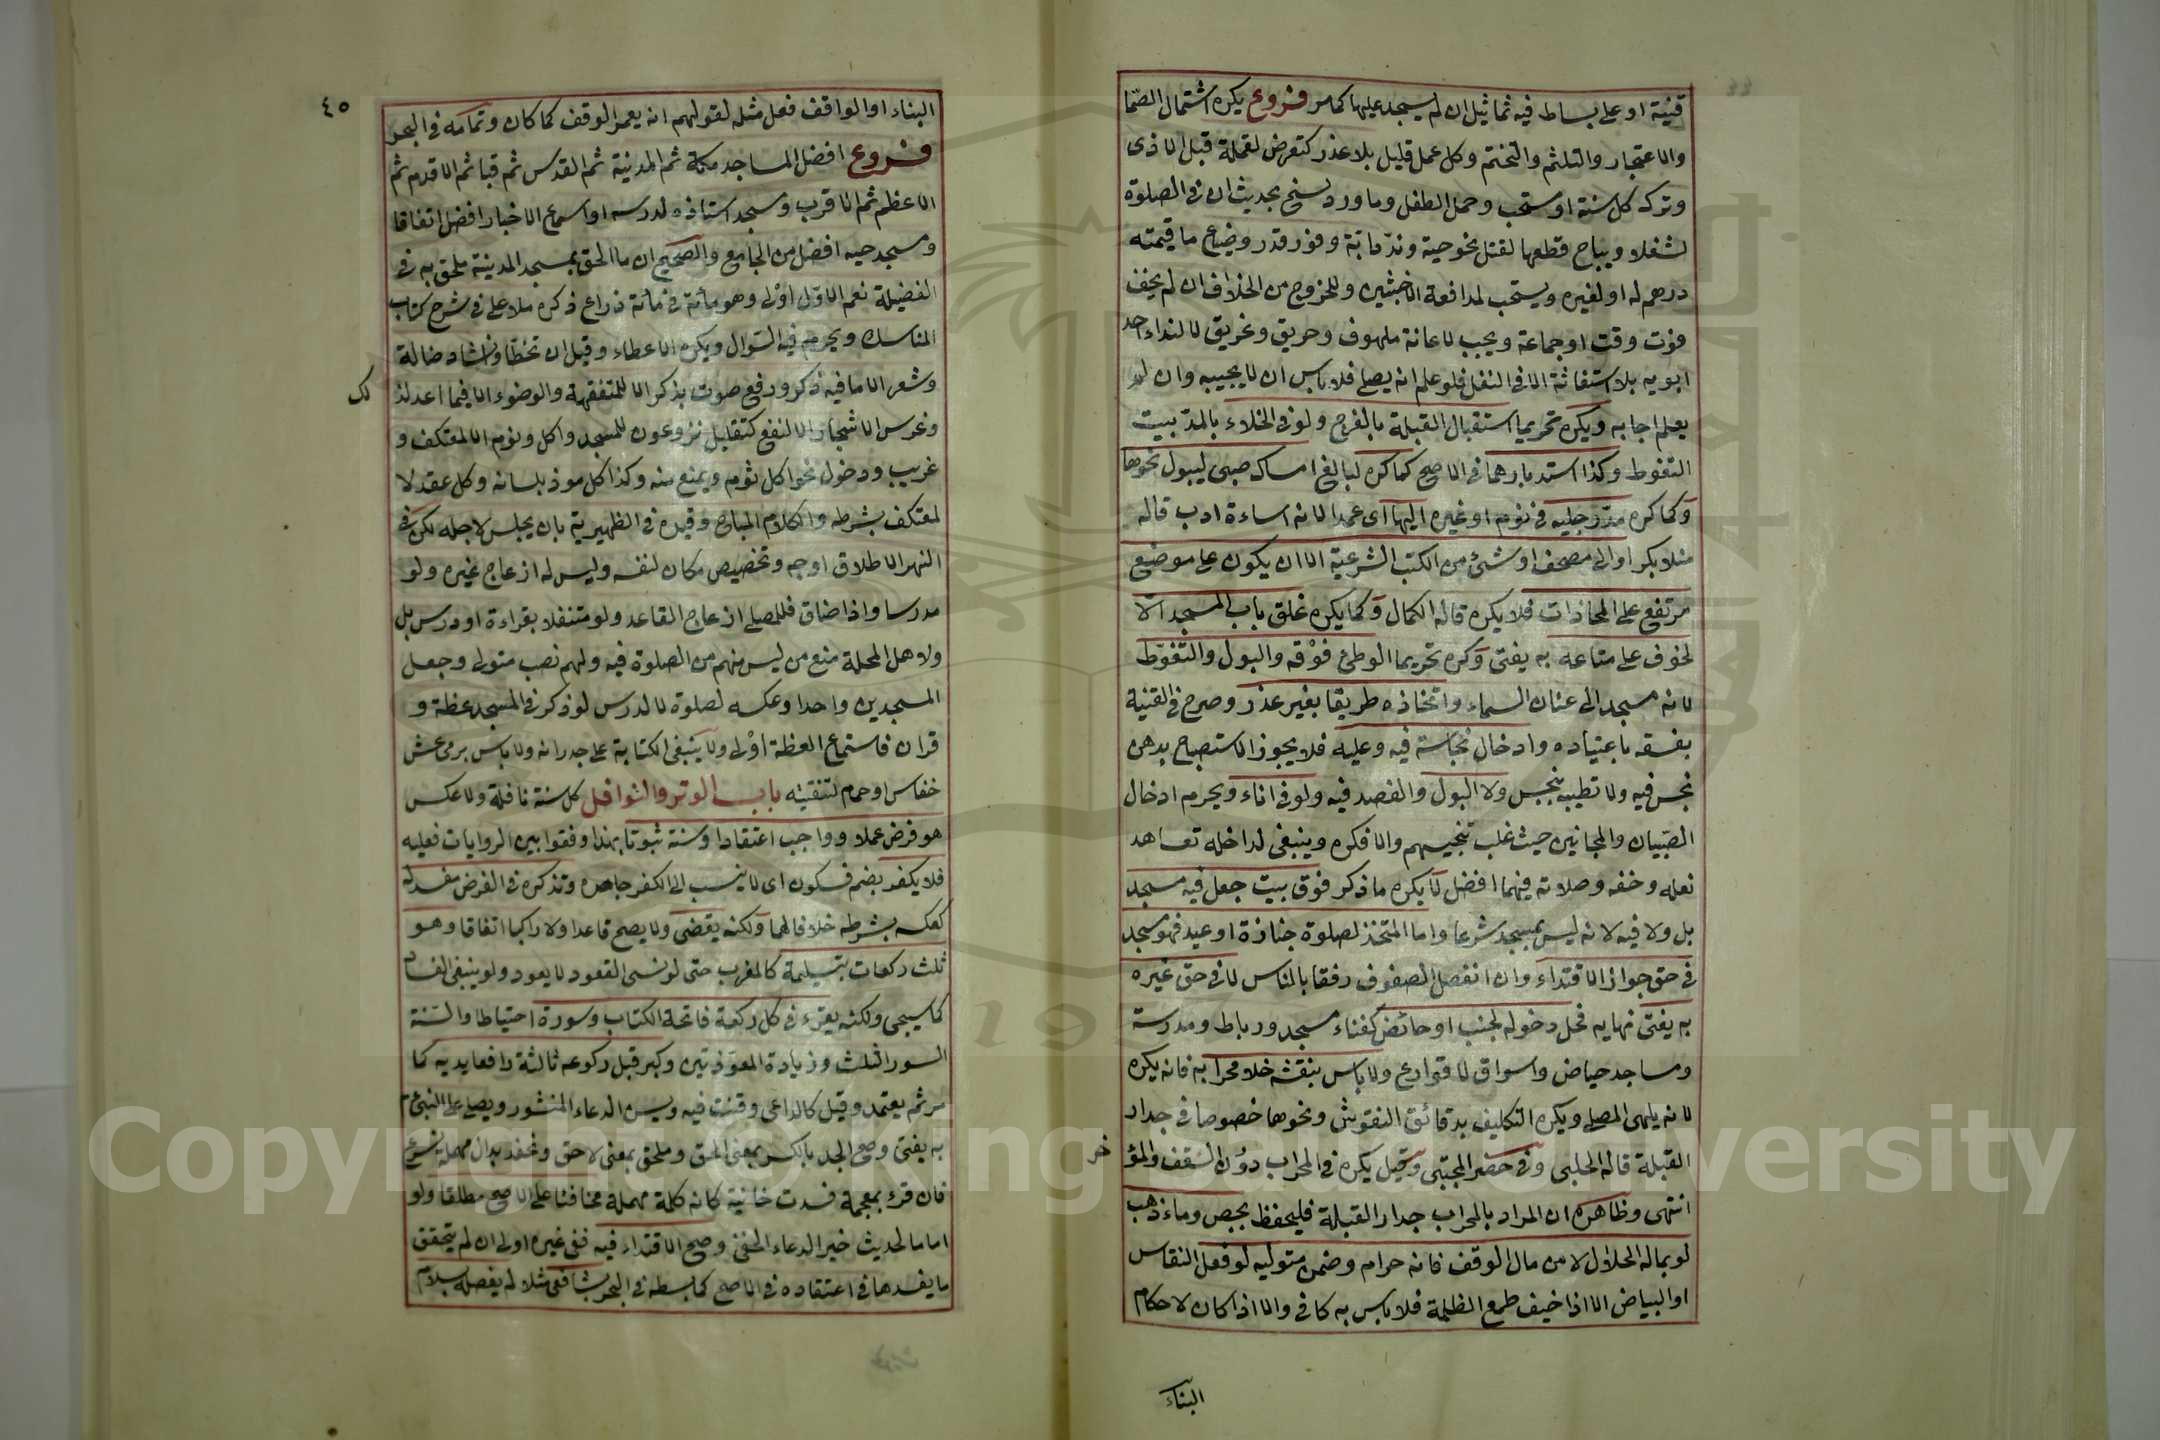 قنية او على بساط فيه تماثيل ان لم يسجد عليها كما مر فروع يكره اشتمال الصما
والاعتجار والتلثم والتختم وكل عمل قليل بلا عذر كتعرض لقملة قبل الاذى
وترك كل سنة او مستحب وحمل الطفل وما ورد نسخ بحديث ان في الصلوة
لشغلا ويباح قطعها لقتل نحو حية وندّ دابة وفور قدر وضياع ما قيمته
درهم له او لغيره ويستحب لمدافعة الاخبثين وللخروج من الخلاف ان لم يخف
فوت وقت او جماعة ويجب لاعانة ملهوف وحريق وغريق لا لنداء احد
ابويه بلا استغاثة الا في النفل فلو علم انه يصلي فلا باس ان لا يجيبه وان لم
يعلم اجابه ويكره تحريما استقبال القبلة بالفرج ولو في الخلاء بالمدّ بيت
التغوط وكذا استدبارهما في الاصح كما كره لبالغ امساك صبي ليبول نحوها
وكما كره مدّ رجليه في نوم او غيره اليها اى عمدا لانه اساءة ادب قاله
منلا بكر او الى مصحف او شئ من الكتب الشرعية الا ان يكون على موضع
مرتفع على المحاذات فلا يكره قاله الكمال وكما يكره غلق باب المسجد الا
لخوف على متاعه به يفتى وكره تحريما الوطئ فوقه والبول والتغوط
لانه مسجد الى عنان السماء واتخاذه طريقا بغير عذر وصرح في القنية
بفسقه باعتياده وادخال نجاسة فيه وعليه فلا يجوز الاستصباح بدهن
نجس فيه ولا تطيينه بنجس ولا البول والفصد فيه ولو في اناء ويحرم ادخال
الصبيان والمجانين حيث غلب تنجيسهم والا فكره وينبغى لداخله تعاهد
نعله وخفه وصلاته فيهما افضل لا يكره ما ذكر فوق بيت جعل فيه مسجد
بل ولا فيه لانه ليس بمسجد شرعا واما المتخذ لصلوة جنازة او عيد فهو مسجد
في حق جواز الاقتداء وان انفصل الصفوف رفقا بالناس لا في حق غيره
به يفتى نهايه فحل دخوله لجنب او حائض كفناء مسجد ورباط ومدرسة
ومساجد حياض واسواق لا قوارع ولا باس بنقشه خلا محرابه فانه يكره
لانه يلهى المصلي ويكره التكليف بدقائق النقوش ونحوها خصوصا في جدار
القبلة قاله الحلبى وفي حضر المجتبى وقيل يكره في المحراب دون السقف والمؤ
خر
انتهى وظاهره ان المراد بالمحراب جدار القبلة فليحفظ بجص وماء ذهب
لو بماله الحلال لا من مال الوقف فانه حرام وضمن متوليه لو فعل النقاس
او البياض الا اذا خيف طمع الظلمة فلا باس به كافى والا اذا كان لاحكام
البناء
٤٥
البناء او الواقف فعل مثله لقولهم انه يعمر الوقف كما كان وتمامه في البحر
فروع افضل المساجد مكة ثم المدينة ثم القدس ثم قبا ثم الاقدم ثم
الاعظم ثم الاقرب ومسجد استاذه لدرسه او اسماع الاخبار افضل اتفاقا
ومسجد حيه افضل من الجامع والصحيح ان ما الحق بمسجد المدينة ملحق به في
الفضيلة نعم الاول اولى وهو مائة في مائة ذراع ذكره ملا على في شرح كتاب
المناسك ويحرم فيه السوال ويكره الاعطاء وقيل ان تخطا وانشاد ضالة
وشعر الا ما فيه ذكر ورفع صوت بذكر الا للمتفقهة والوضوء الا فيما اعد لذ
لك
وغرس الاشجار الا لنفع كتقليل نز وتكون للمسجد واكل ونوم الا لمعتكف و
غريب ودخول نحو اكل ثوم ويمنع منه وكذا كل موذ بلسانه وكل عقد لا
لمعتكف بشرطه والكلام المباح وقيده في الظهيرية بان يجلس لاجله لكن في
النهر الاطلاق اوجه وتخصيص مكان لنفسه وليس له ازعاج غيره ولو
مدرسا واذا ضاق فللمصلى ازعاج القاعد ولو متنفلا بقراءة او درس بل
ولاهل المحلة منع من ليس منهم من الصلوة فيه ولهم نصب متولى وجعل
المسجدين واحدا وعكسه لصلوة لا لدرس لو ذكر في المسجد عظة و
قران فاستماع العظة اولى ولا ينبغى الكتابة على جدرانه ولا باس برمى عش
خفاس او حمام لتنقيته باب الوتر والنوافل كل سنة نافلة ولا عكس
هو فرض عملا وواجب اعتقادا وسنة ثبوتا بهذا وفقوا بين الروايات فعليه
فلا يكفر بضم فسكون اى لا ينسب الى الكفر جاحده وتذكره في الفرض مفسد له
كعكسه بشرطه خلافا لهما ولكنه يقضى ولا يصح قاعدا ولا راكبا اتفاقا وهو
ثلث ركعات بتسليمة كالمغرب حتى لو نسى القعود لا يعود ولو ينبغى الفساد
كما سيجى ولكنه يقرء في كل ركعة فاتحة الكتاب وسورة احتياطا والسنة
السور الثلث وزيادة المعوذتين وكبر قبل ركوعه ثالثة رافعا يديه كما
مر ثم يعتمد وقيل كالداعى وقنت فيه ويسن الدعاء المنشور ويصلى على النبى
به يفتى وصح الجد بالكسر بمعنى الحق وملحق بمعنى لاحق ونحفد بدال مهملة نسرع
فان قرء بمعجمة فسدت خانية كانه كلمة مهملة مخافتا على الاصح مطلقا ولو
اماما لحديث خير الدعاء الخفى وصح الاقتداء فيه ففى غيره اولى ان لم يتحقق
ما يفسدها في اعتقاده في الاصح كما بسطه في البحر بشافعى مثلا لم يفصله بسلام
Copyright © King Saud University